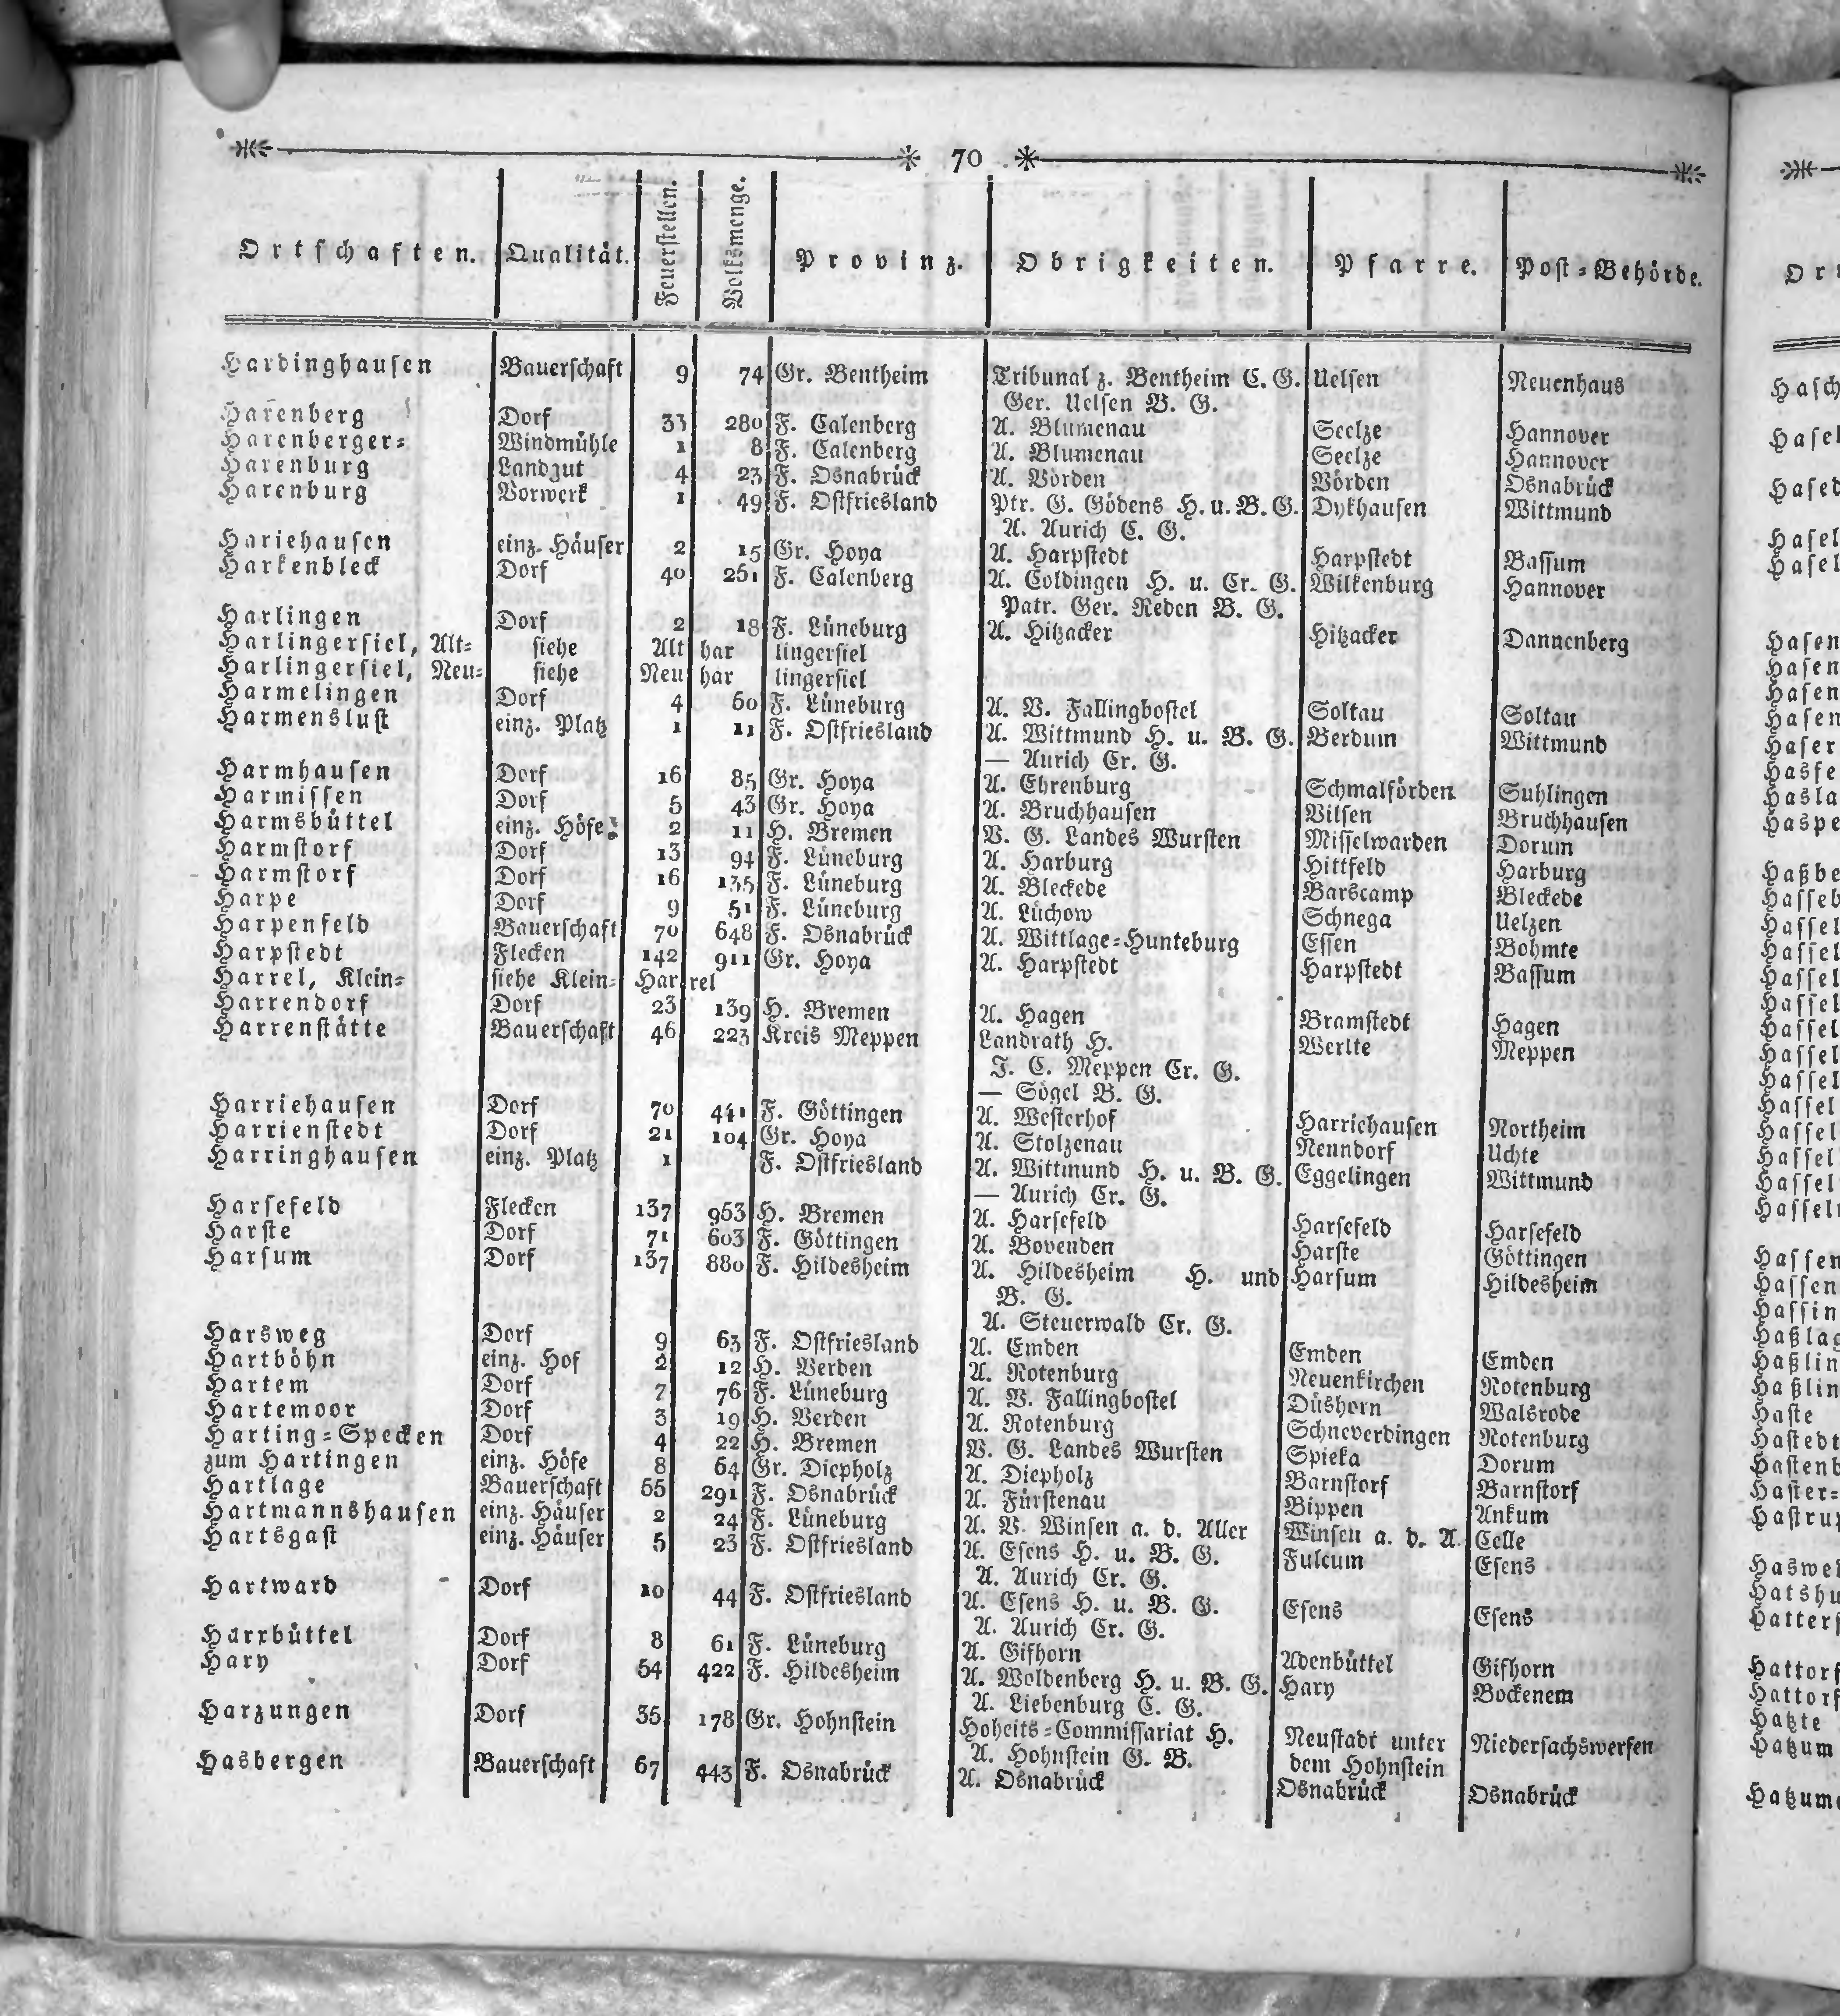 70
Ortschaften. Qualität. Feuerstellen. Volksmenge. Provinz. Obrigkeiten. Pfarre. Post-Behörde.
Hardinghausen Bauerschaft 9 74 Gr. Bentheim Tribunal z. Bentheim C. G. Uelsen Neuenhaus
Ger. Uelsen B. G.
Harenberg Dorf 33 280 F. Calenberg A. Blumenau Seelze Hannover
Harenberger- Windmühle 1 8 F. Calenberg A. Blumenau Seelze Hannover
Harenburg Landgut 4 23 F. Osnabrück A. Vörden Vörden Osnabrück
Harenburg Vorwerk 1 49 F. Ostfriesland Ptr. G. Gödens H. u. B. G. Dykhausen Wittmund
A. Aurich C. G.
Hariehausen einz. Häuser 2 15 Gr. Hoya A. Harpstedt Harpstedt Bassum
Harkenbleck Dorf 40 251 F. Calenberg A. Coldingen H. u. Cr. G. Wilkenburg Hannover
Patr. Ger. Reden B. G.
Harlingen Dorf 2 18 F. Lüneburg A. Hitzacker Hitzacker Dannenberg
Harlingersiel, Alt- siehe Alt har lingersiel
Harlingersiel, Neu- siehe Neu har lingersiel
Harmelingen Dorf 4 50 F. Lüneburg A. V. Fallingbostel Soltau Soltau
Harmenslust einz. Platz 1 11 F. Ostfriesland A. Wittmund H. u. B. G. Berdum Wittmund
— Aurich Cr. G.
Harmhausen Dorf 16 85 Gr. Hoya A. Ehrenburg Schmalförden Suhlingen
Harmissen Dorf 5 43 Gr. Hoya A. Bruchhausen Vilsen Bruchhausen
Harmsbüttel einz. Höfe 2 11 H. Bremen V. G. Landes Wursten Misselwarden Dorum
Harmstorf Dorf 13 94 F. Lüneburg A. Harburg Hittfeld Harburg
Harmstorf Dorf 16 135 F. Lüneburg A. Bleckede Barscamp Bleckede
Harpe Dorf 9 51 F. Lüneburg A. Lüchow Schnega Uelzen
Harpenfeld Bauerschaft 70 648 F. Osnabrück A. Wittlage-Hunteburg Essen Bohmte
Harpstedt Flecken 142 911 Gr. Hoya A. Harpstedt Harpstedt Bassum
Harrel, Klein- siehe Klein- Har rel
Harrendorf Dorf 23 139 H. Bremen A. Hagen Bramstedt Hagen
Harrenstätte Bauerschaft 46 223 Kreis Meppen Landrath H. Werlte Meppen
J. C. Meppen Cr. G.
— Sögel B. G.
Harriehausen Dorf 70 441 F. Göttingen A. Westerhof Harriehausen Northeim
Harrienstedt Dorf 21 104 Gr. Hoya A. Stolzenau Nenndorf Uchte
Harringhausen einz. Platz 1 F. Ostfriesland A. Wittmund H. u. B. G. Eggelingen Wittmund
— Aurich Cr. G.
Harsefeld Flecken 137 963 H. Bremen A. Harsefeld Harsefeld Harsefeld
Harste Dorf 71 603 F. Göttingen A. Bovenden Harste Göttingen
Harsum Dorf 137 880 F. Hildesheim A. Hildesheim H. und Harsum Hildesheim
B. G.
A. Steuerwald Cr. G.
Harsweg Dorf 9 63 F. Ostfriesland A. Emden Emden Emden
Hartböhn einz. Hof 2 12 H. Verden A. Rotenburg Neuenkirchen Rotenburg
Hartem Dorf 7 76 F. Lüneburg A. V. Fallingbostel Düshorn Walsrode
Hartemoor Dorf 3 19 H. Verden A. Rotenburg Schneverdingen Rotenburg
Harting-Specken Dorf 4 22 H. Bremen V. G. Landes Wursten Spieka Dorum
zum Hartingen einz. Höfe 8 64 Gr. Diepholz A. Diepholz Barnstorf Barnstorf
Hartlage Bauerschaft 55 291 F. Osnabrück A. Fürstenau Bippen Ankum
Hartmannshausen einz. Häuser 2 24 F. Lüneburg A. V. Winsen a. d. Aller Winsen a. d. A. Celle
Hartsgast einz. Häuser 5 23 F. Ostfriesland A. Esens H. u. B. G. Fulcum Esens
A. Aurich Cr. G.
Hartward Dorf 10 44 F. Ostfriesland A. Esens H. u. B. G. Esens Esens
A. Aurich Cr. G.
Harxbüttel Dorf 8 61 F. Lüneburg A. Gifhorn Adenbüttel Gifhorn
Hary Dorf 54 422 F. Hildesheim A. Woldenberg H. u. B. G. Hary Bockenem
A. Liebenburg C. G.
Harzungen Dorf 35 178 Gr. Hohnstein Hoheits-Commissariat H. Neustadt unter Niedersachswerfen
A. Hohnstein G. B. dem Hohnstein
Hasbergen Bauerschaft 67 443 F. Osnabrück A. Osnabrück Osnabrück Osnabrück